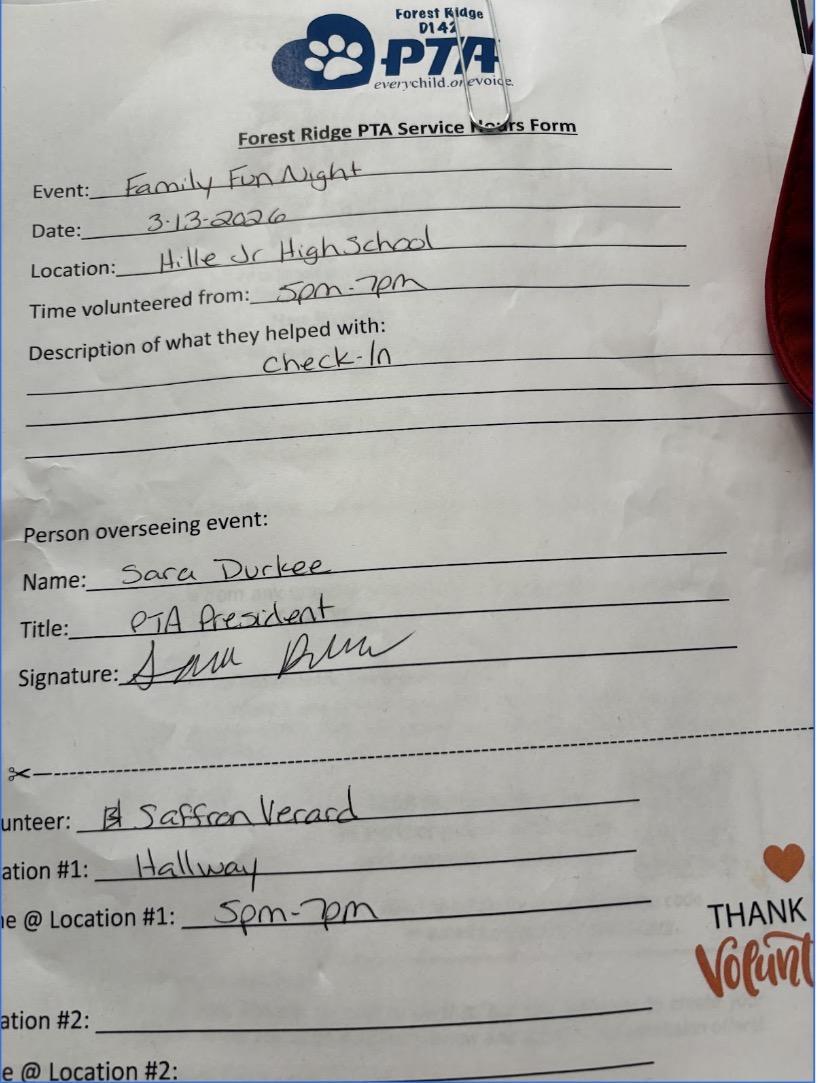 Forest Ridge
D142
PTA
everychild.onevoice.
Forest Ridge PTA Service Hours Form
Event: Family Fun Night
Date: 3-13-2026
Location: Hille Jr High School
Time volunteered from: 5pm-7pm
Description of what they helped with:
Check-In
Person overseeing event:
Name: Sara Durkee
Title: PTA President
Signature: Sara
unteer: Saffron Verard
ation #1: Hallway
e @ Location #1: 5pm-7pm
THANK
Volunt
ation #2:
e @ Location #2: